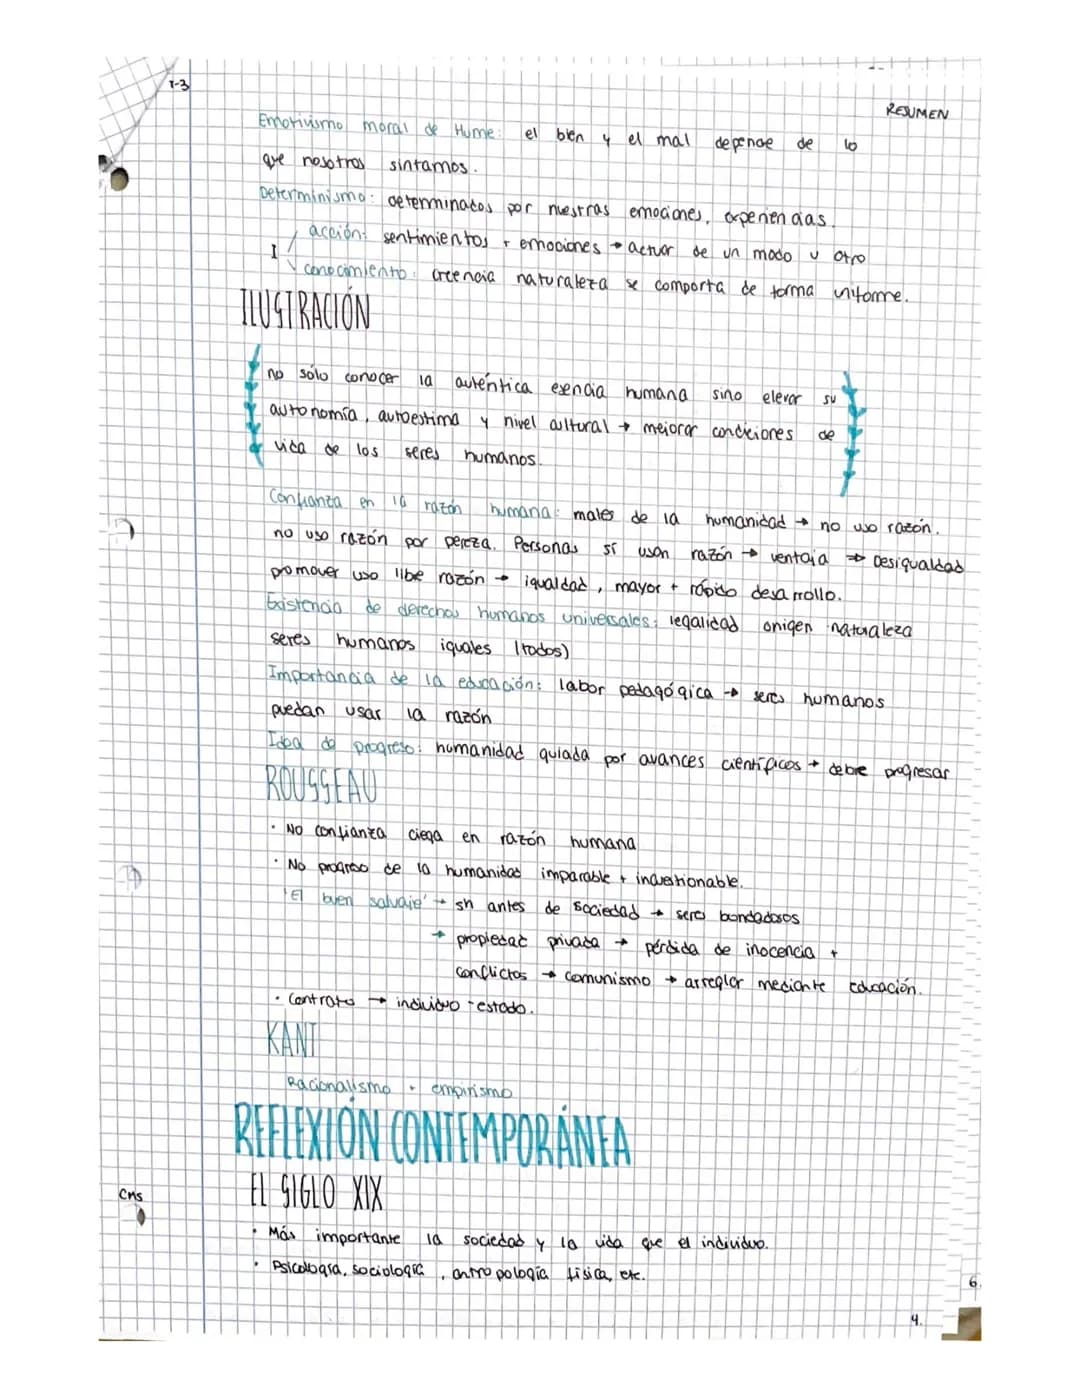 T-3
RESUMEN
Emotivismo moral de Hume: el bien y el mal depende de lo
que nosotros sintamos.
Determinismo: determinados por nuestras emociones, experiencias.
acción: sentimientos + emociones → actuar de un modo u otro
I
conocimiento: creencia naturaleza se comporta de forma uniforme.
ILUSTRACIÓN
no sólo conocer la auténtica esencia humana sino elevar su
autonomía, autoestima y nivel cultural → mejorar condiciones de
vida de los seres humanos.
Confianza en la razón humana: males de la humanidad → no uso razón.
no uso razón por pereza. Personas sí usan razón → ventaja ⇒ Desigualdad
promover uso libe razón → igualdad, mayor + rápido desarrollo.
Existencia de derechos humanos universales: legalidad origen naturaleza
seres humanos iguales (todos)
Importancia de la educación: labor pedagógica → seres humanos
puedan usar la razón
Idea de progreso: humanidad guiada por avances científicos → debre progresar
ROUSSEAU
· No confianza ciega en razón humana
· No progreso de la humanidad imparable + incuestionable.
'El buen salvaje' → sh antes de sociedad → seres bondadosos
→ propiedad privada → pérdida de inocencia +
conflictos → comunismo → arreglar mediante educación.
· Contrato → individuo - estado.
KANT
Racionalismo + empirismo
REFLEXIÓN CONTEMPORÁNEA
EL SIGLO XIX
· Más importante la sociedad y la vida que el individuo.
· Psicología, sociología, antropología física, etc.
Cms
6.
4.